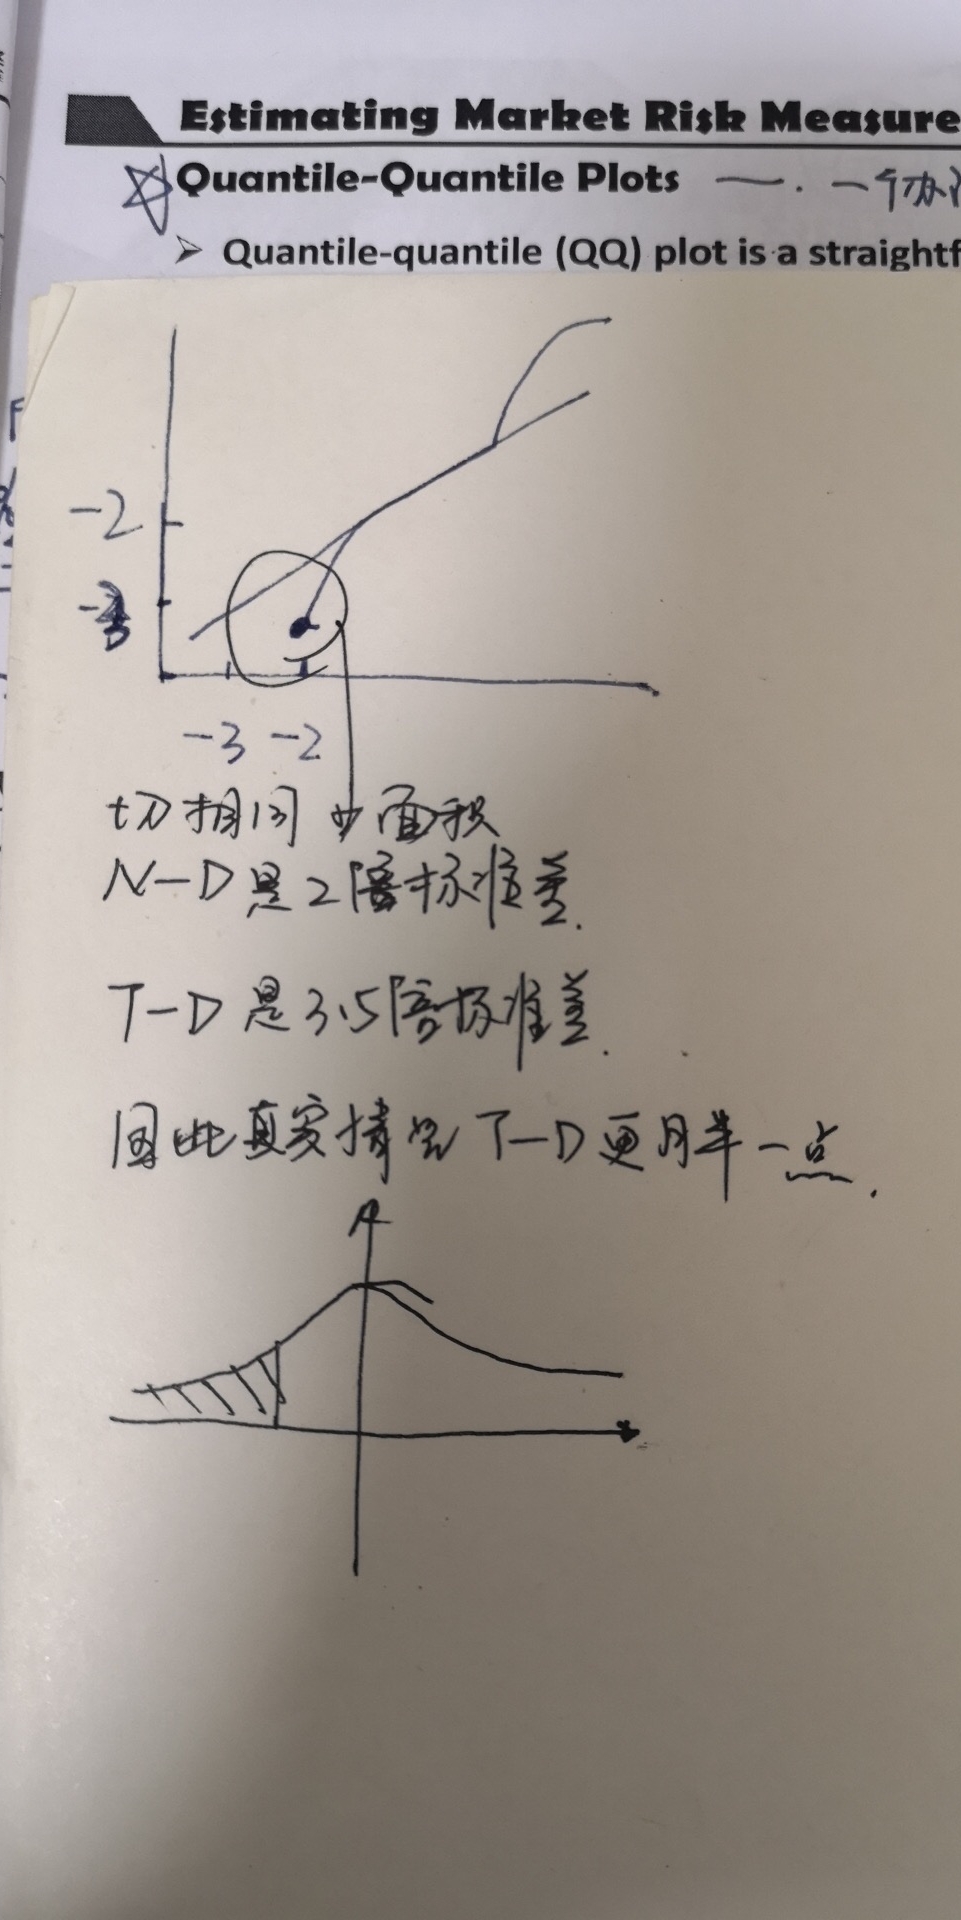 Estimating Market Risk Measure
Quantile-Quantile Plots
➢ Quantile-quantile (QQ) plot is a straightf
-2
-3
-3 -2
切相同 面积
N-D是2倍标准差.
T-D是3.5倍标准差.
因此真实情况 T-D更月半一点.